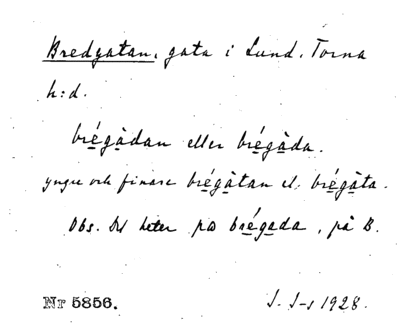 Bredgatan, gata i Lund. Torna
h:d.
brégàdan eller brégàda.
yngre och finare brégàtan el. brégàta.
Obs. Det heter på brégada, på B.
Nr 5856.
J. S-s 1928.